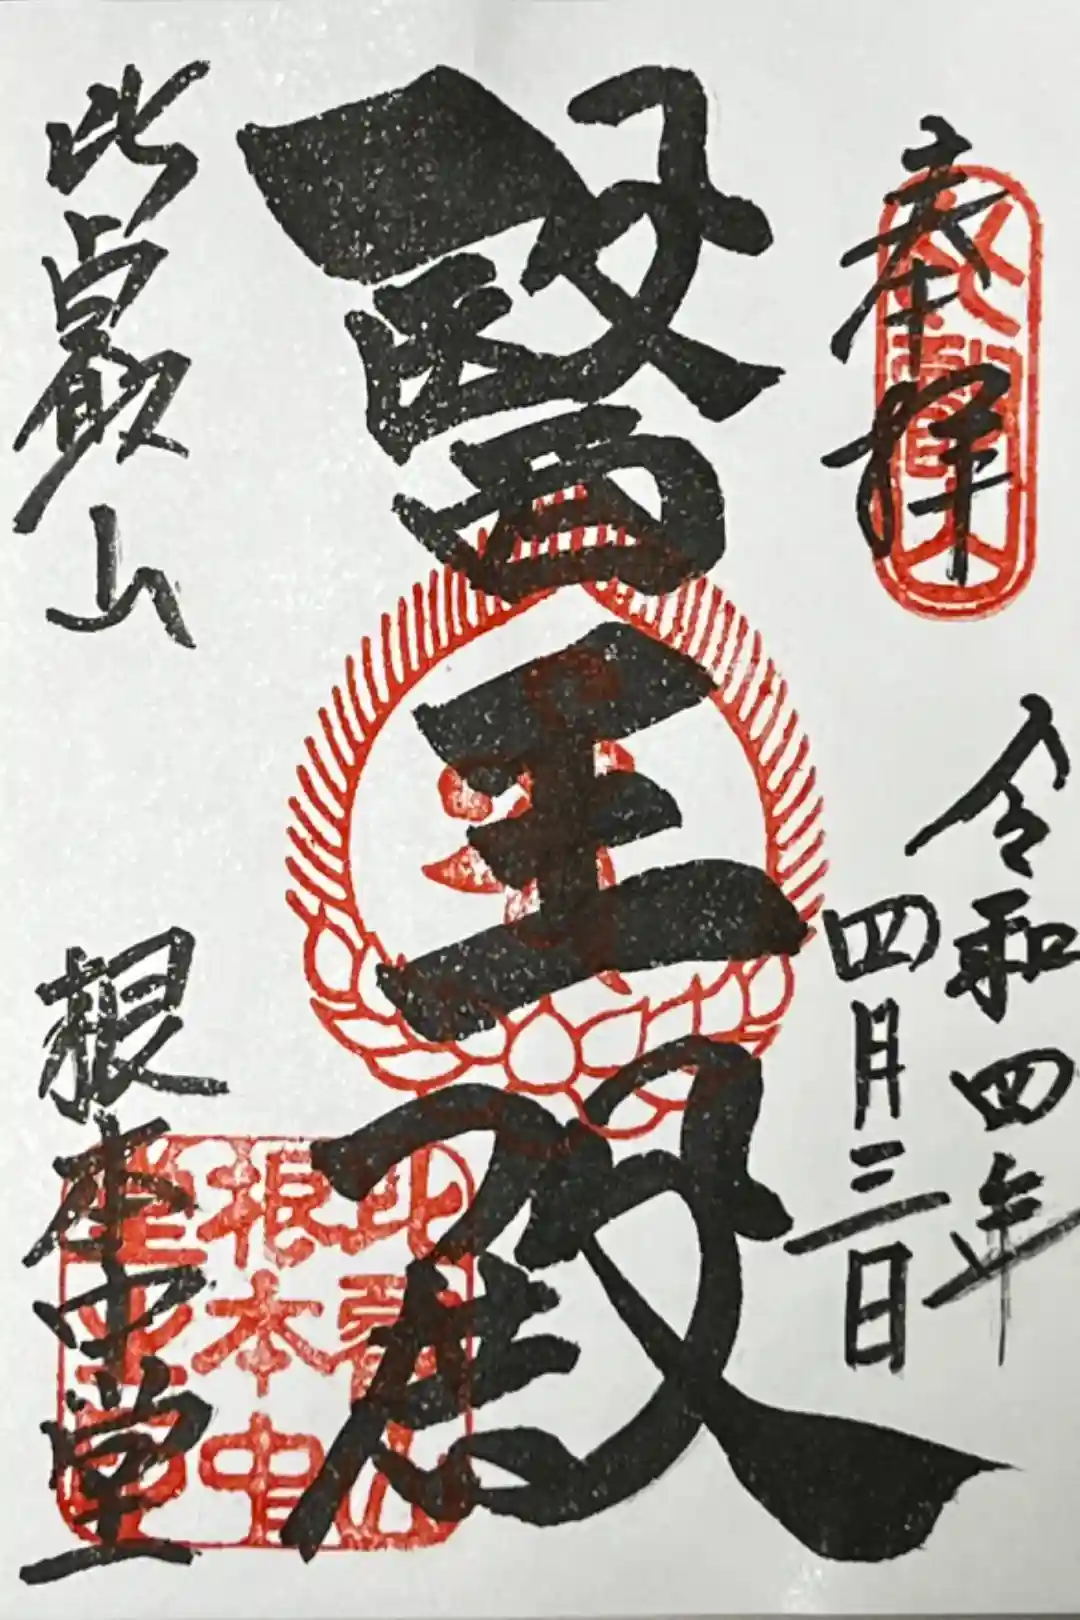 奉拝
令和四年
四月三日
醫王殿
比叡山 根本中堂
比叡山
根本中
堂之印